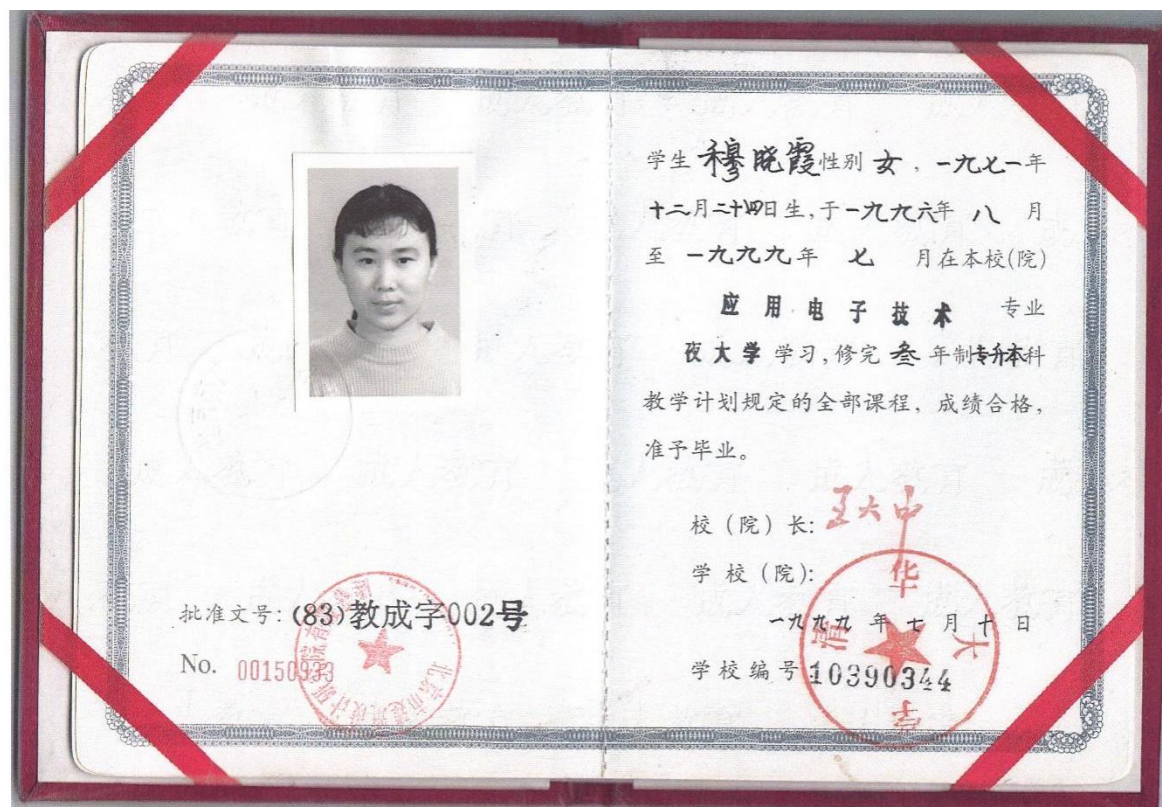 批准文号:(83)教成字002号
No. 00150933
学生 穆晓霞 性别 女 , 一九七一年
十二月二十四日生,于一九九六年 八 月
至 一九九九年 七 月在本校(院)
应用电子技术 专业
夜大学 学习,修完 叁 年制专升本科
教学计划规定的全部课程,成绩合格,
准予毕业。
校(院)长: 王大中
学校(院):
清华大学
一九九九年七月十日
学校编号 10390344